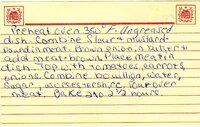 Preheat oven 350° F. Ungreased
dish. Combine flour & mustard.
Pound in meat. Brown onion in butter &
add meat - brown. Place meat in
dish. Top with tomatoes, carrots,
onions. Combine bouillon, water,
sugar, worcestershire. Pour over
meat. Bake 2 to 2 1/2 hours.